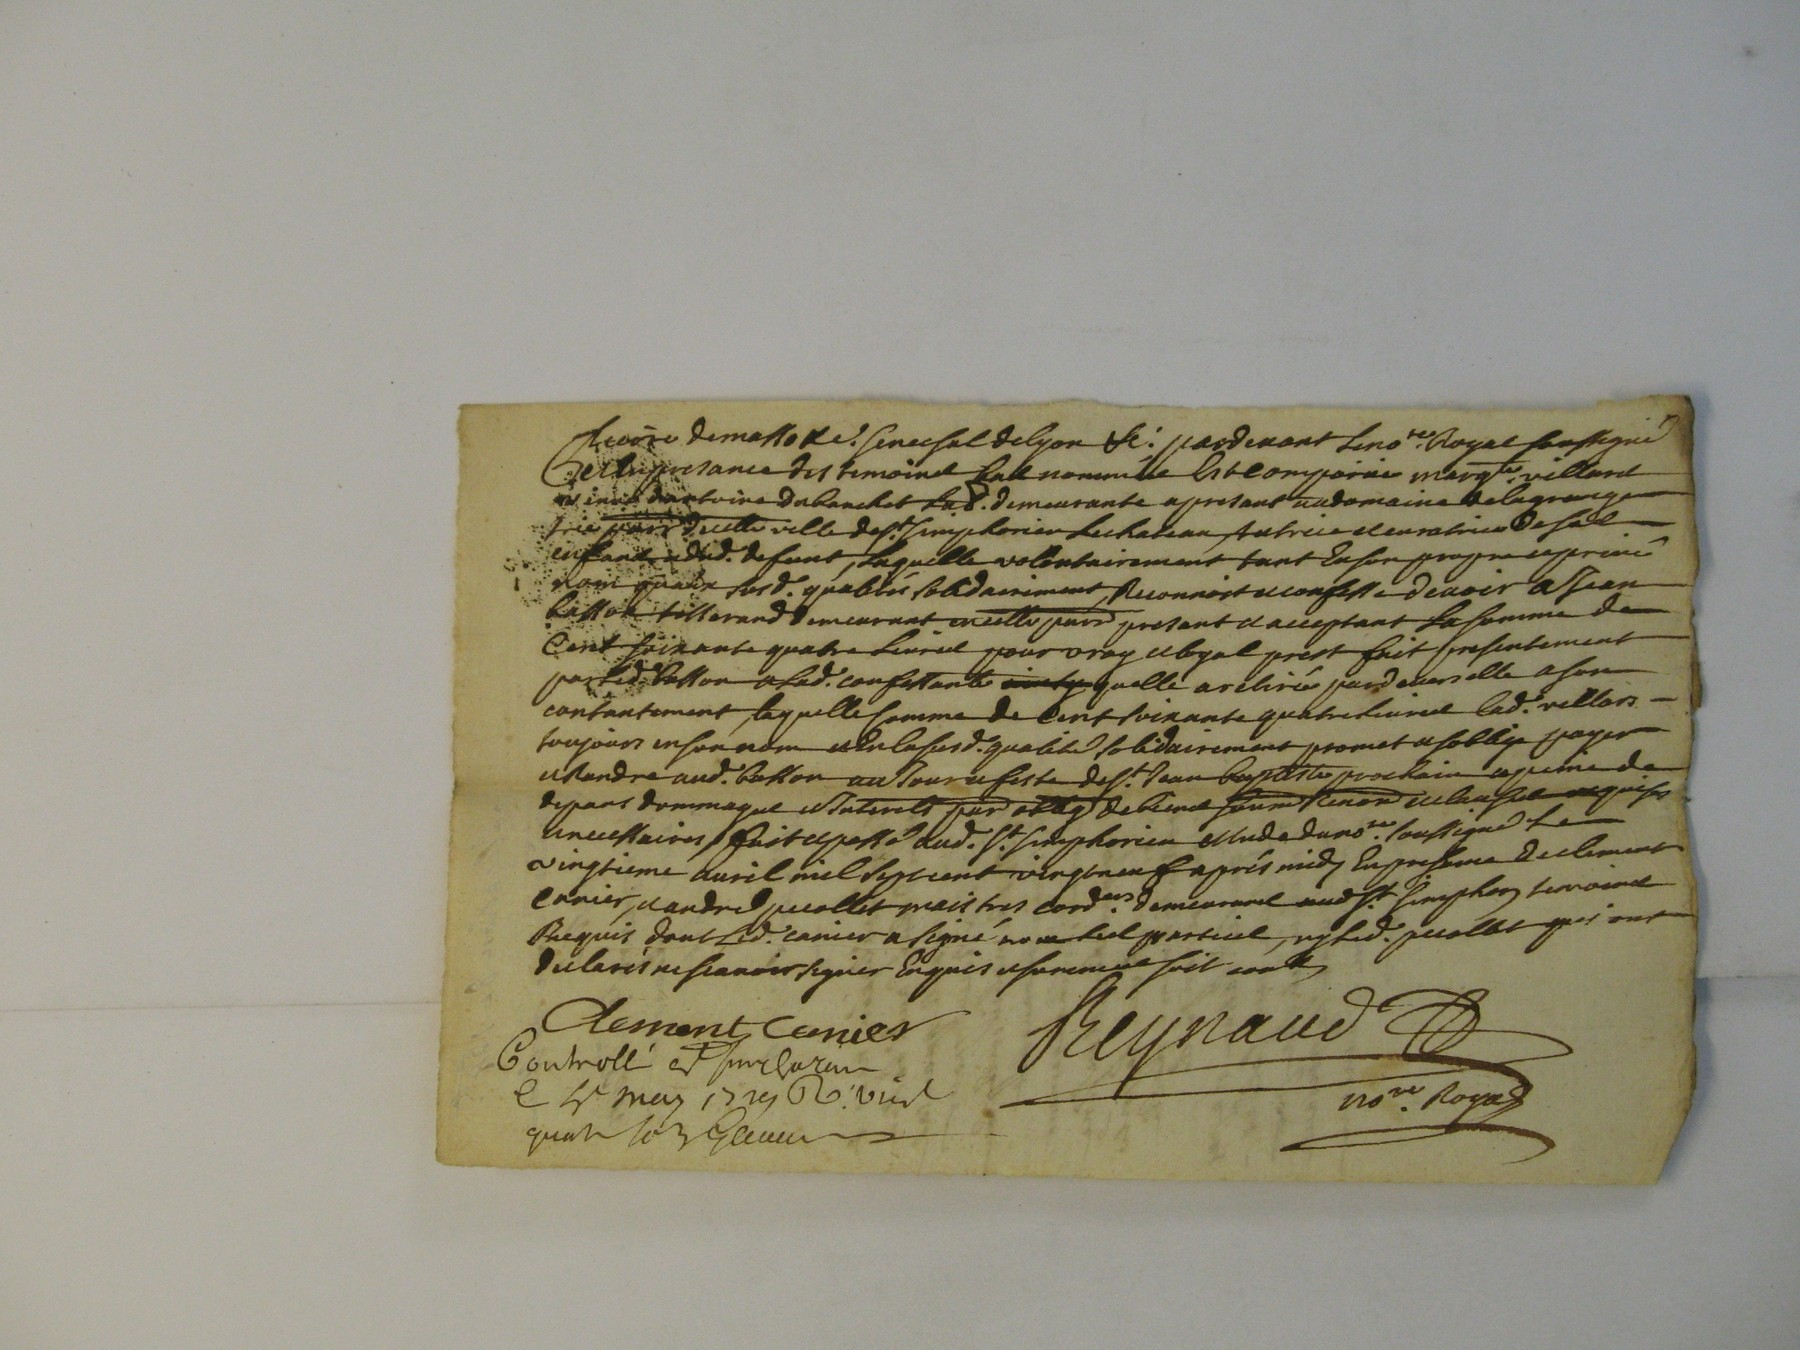 demasso &c.ª Senechal de Lyon &c.ª pardevant le no.re Royal soussigné
et En presance des temoins bas nommés Est Comparue marg.te villard
veuve d'antoine Dubanchet demeurante a presant au domaine de la grange
ville de S.t Simphorien le chateau tutrice et curatrice De ses
enfants et dud. defunt, laquelle volontairement tant En son propre et privé
nom qu'aux susd. qualités solidairement, Reconnoist et confesse devoir a Jean
basson tisserand Demeurant en cette parr. presant et acceptant la somme de
Cent soixante quatre Livres pour vray et loyal prest fait presentement
par led. basson a lad. confessante quelle a retirée pardevers elle a son
contantement, laquelle somme de Cent soixante quatre Livres lad. villars
toujours en son nom et En la susd. qualité solidairement promet et s'oblige payer
et Randre aud. basson au Jour et feste de S.t Jean baptiste prochain a peine de
depans dommages et Interets par oblig. de biens soum. Renon. et clauses requises
et necessaires, fait et passé aud. S.t Simphorien Etude du no.re soussigné Le
vingtieme avril mil sept cent vingt neuf après midy En presence De clement
Cunier, et andré pecollet maistres cord.ers Demeurans aud. S.t Simphor. temoins
Requis dont led. cunier a signé non les parties, ny led. pecollet qui ont
declarés ne scavoir signer Enquis et sommés soit con.lé
Clement Cunier
Reynaud
no.re Royal
Controllé a S.t Simphorien
le may 1729 R.
quatre sols